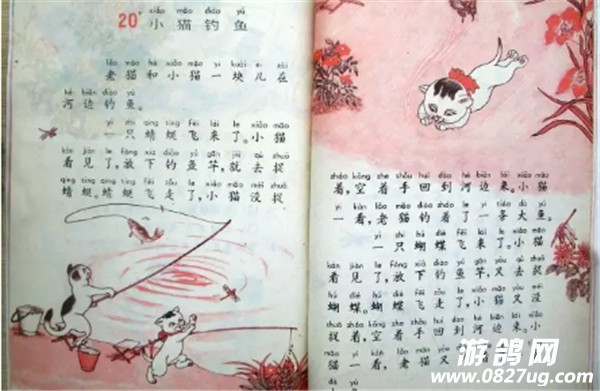 20 小猫钓鱼
xiǎo māo diào yú
lǎo māo hé xiǎo māo yí kuàir zài
老猫和小猫一块儿在
hé biān diào yú
河边钓鱼。
yì zhī qīng tíng fēi lái le xiǎo māo
一只蜻蜓飞来了。小猫
kàn jiàn le fàng xià diào yú gān jiù qù zhuō
看见了,放下钓鱼竿,就去捉
qīng tíng qīng tíng fēi zǒu le xiǎo māo méi zhuō
蜻蜓。蜻蜓飞走了,小猫没捉
zháo kōng zhe shǒu huí dào hé biān lái xiǎo māo
着,空着手回到河边来。小猫
yí kàn lǎo māo diào zháo le yì tiáo dà yú
一看,老猫钓着了一条大鱼。
yì zhī hú dié fēi lái le xiǎo māo
一只蝴蝶飞来了。小猫
kàn jiàn le fàng xià diào yú gān yòu qù zhuō
看见了,放下钓鱼竿,又去捉
hú dié hú dié fēi zǒu le xiǎo māo yòu méi
蝴蝶。蝴蝶飞走了,小猫又没
zhuō zháo kōng zhe shǒu huí dào hé biān lái xiǎo
捉着,空着手回到河边来。小
māo yí kàn lǎo māo yòu
猫一看,老猫又
游鸽网
www.0827ug.com